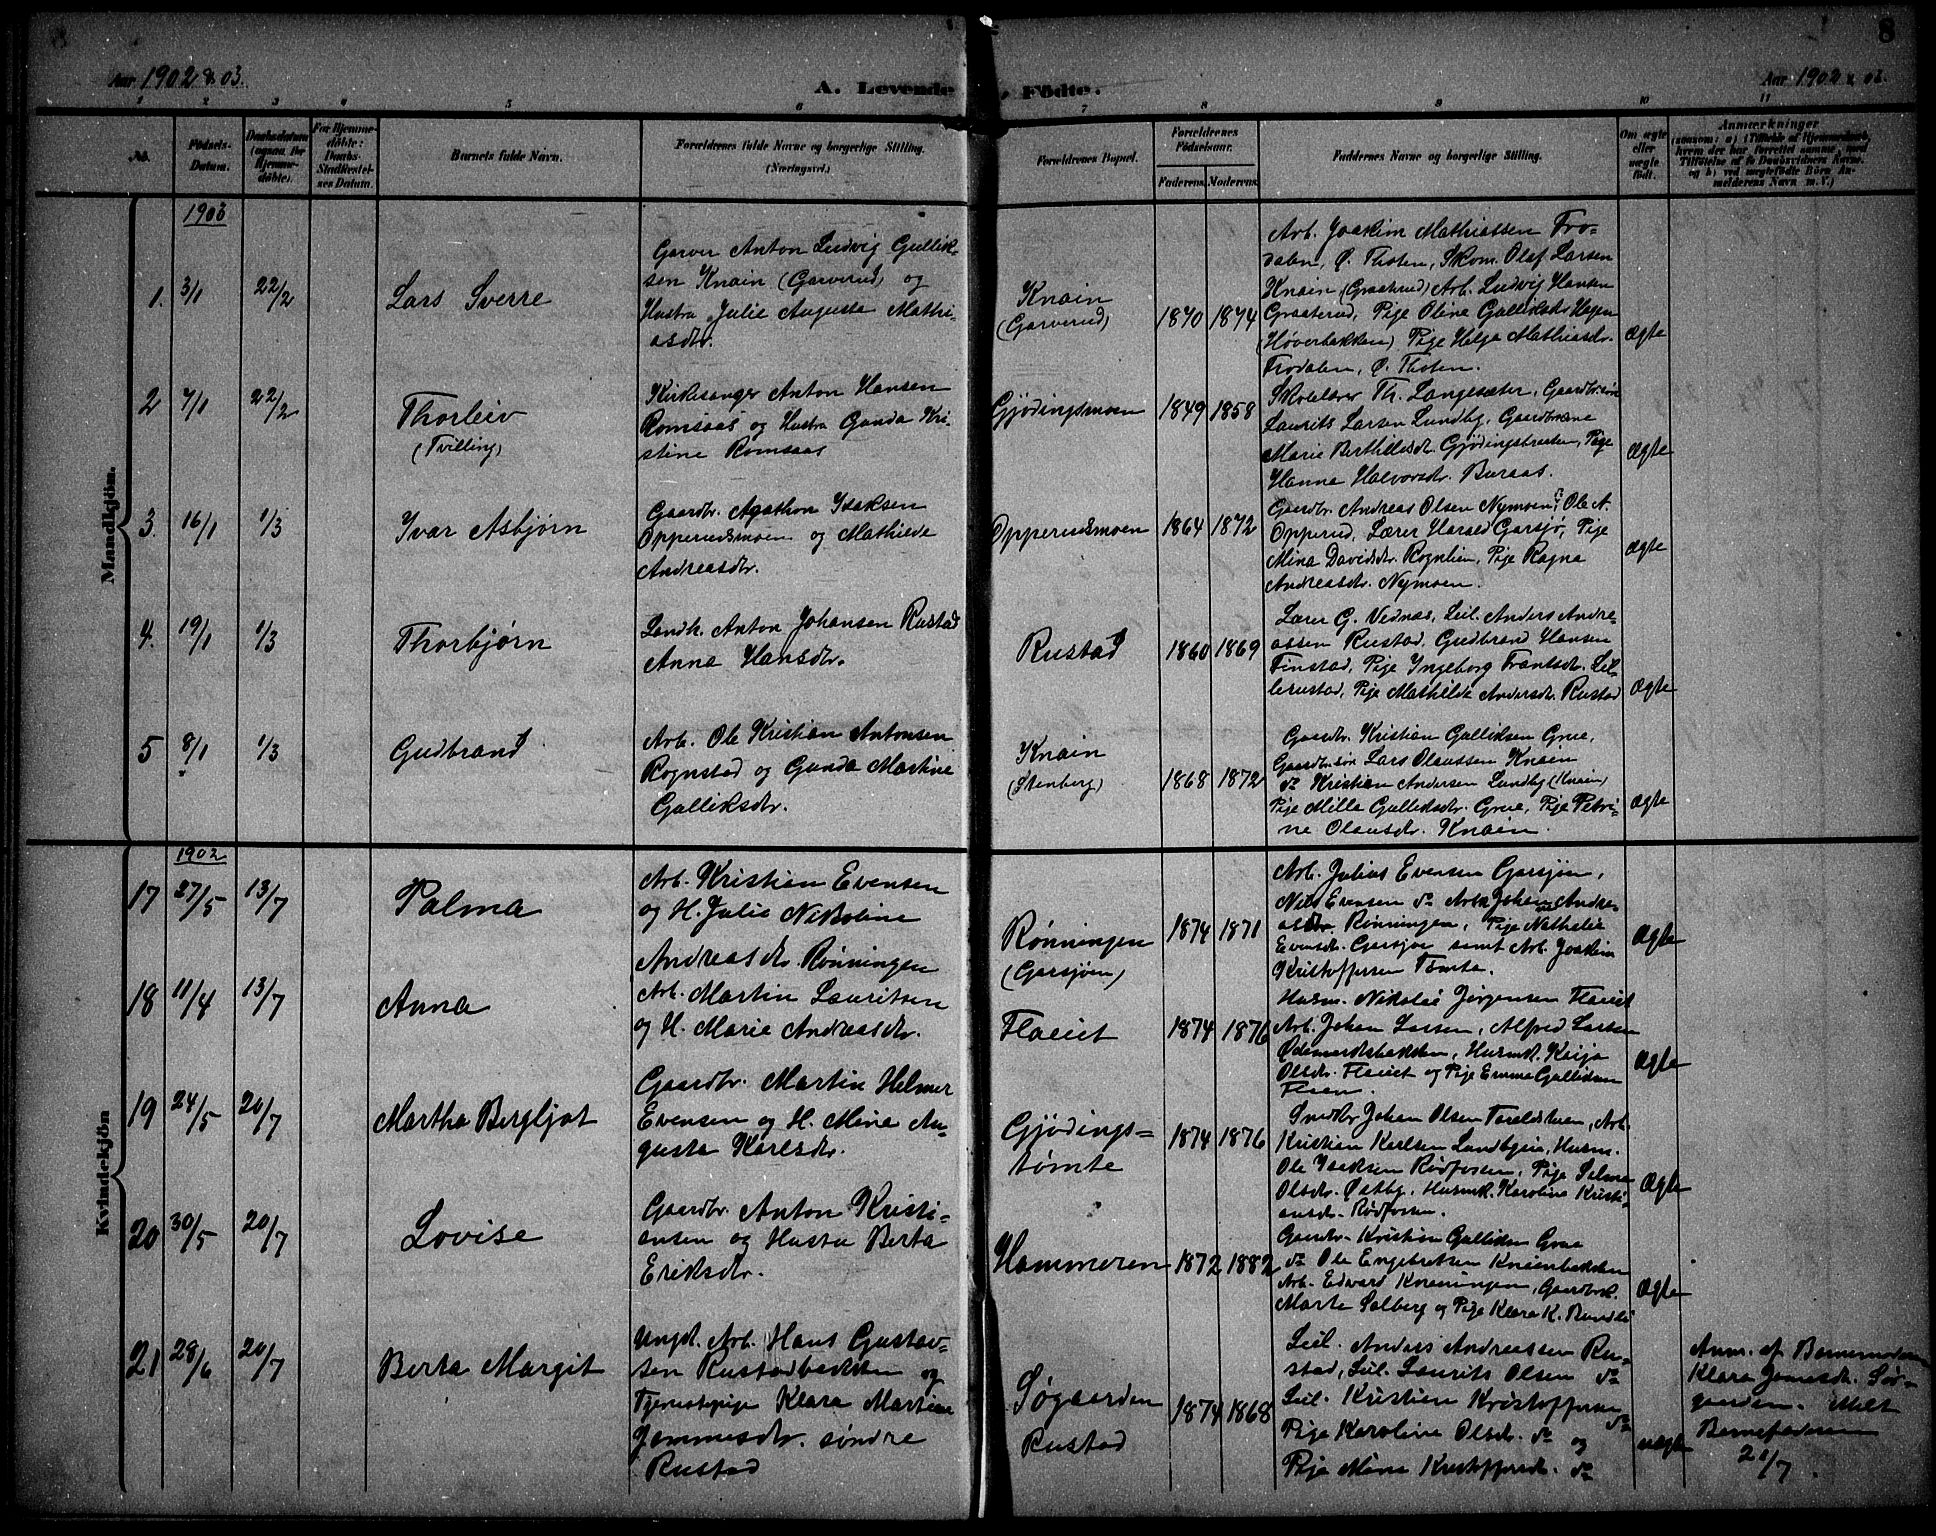 8
Aar 1902 & 03.
A. Levende Födte.
Aar 1902 & 03.
1 2 3 4 5 6 7 8 9 10 11
No.
Födsels-
Datum.
Daabsdatum
(ogsaa for
Hjemme-
döbte).
For Hjemme-
döbte:
Daabs-
Stadfæstel-
ses Datum.
Barnets fulde Navn.
Forældrenes fulde Navne og borgerlige Stilling.
(Næringsvei.)
Forældrenes Bopæl.
Forældrenes
Födselsaar.
Faderens. Moderens.
Faddernes Navne og borgerlige Stilling.
Om ægte
eller
uægte
födt.
Anmærkninger
Mandkjön.
1903
1. 3/1 22/2
Lars Sverre
Garver Anton Ludvig Gullik-
sen Knain (Garverud) og
Hustru Julie Auguste Mathi-
asdtr.
Knain
(Garverud)
1870 1874
Arb. Joakim Mathiassen Fro-
dalen, Ø. Thoten, Skom. Olaf Larsen
Knain (Graaterud) Arb. Ludvig Hansen
Graaterud, Pige Oline Gulliksdr. Hagen
(Høverbakken) Pige Helga Mathiasdr.
Frodalen, Ø. Thoten.
Ægte
2 7/1 22/2
Thorleiv
(Tvilling)
Kirkesanger Anton Hansen
Romsaas og Hustru Gunda Kri-
stine Romsaas
Gjødingsmoen
1849 1858
Skolelærer Th. Langesæter, Gaardbr.søn
Laurits Larsen Lundby, Gaardbrkone
Marie Berthillesdr. Gjødingstræten, Pige
Hanna Halvorsdr. Buraas.
Ægte
3. 16/1 1/3
Ivar Asbjørn
Gaardbr. Agathon Isaksen
Opperudsmoen og Mathilde
Andreasdtr.
Opperudsmoen
1864 1872
Gaardbr. Andreas Olsen Nymoen, Ole A.
Opperud, Lærer Harald Garsjø, Pige
Mina Davidsdr. Rognlien, Pige Ragna
Andreasdr. Nymoen.
Ægte
4. 19/1 1/3
Thorbjørn
Landh. Anton Johansen Rustad
Anna Hansdtr.
Rustad
1860 1869
Lærer G. Vednæs, Leil. Anders Andre-
assen Rustad, Gudbrand Hansen
Finstad, Pige Ingeborg Frantsdr. Lil-
lerustad, Pige Mathilde Andersdr. Rustad
Ægte
5 8/1 1/3
Gudbrand
Arb. Ole Kristian Antonsen
Rognstad og Gunda Martine
Gulliksdtr.
Knain
(Stenberg)
1868 1872
Gaardbr. Kristian Gulliksen Grue,
Gaardbrsøn Lars Olaussen Knain
do Kristian Andersen Lundby (Knain)
Pige Milla Gulliksdr. Grue, Pige Petri-
ne Olausdr. Knain.
Ægte
Kvindekjön
1902
17 27/5 13/7
Palma
Arb. Kristian Evensen
og H. Julie Nikoline
Andreasdr. Rønningen
Rønningen
(Garsjøen)
1874 1871
Arb. Julius Evensen Garsjøen,
Nils Evensen do Arb. Johan Andre-
Rønningen, Pige Nathalie
Evensdr. Garsjøen samt Arb. Joakim
Kristoffersen Tømte.
Ægte
18 11/4 13/7
Anna
Arb. Martin Lauritsen
og H. Marie Andreasdtr.
Flaeiet
1874 1876
Husm. Nikolai Jørgensen Flaeiet
Arb. Johan Larsen, Alfred Larsen
Ødemarksbakken, Husmk. Kaija
Olsdr. Flaeiet og Pige Emma Gulliksen
Flaen.
Ægte
19 24/5 20/7
Martha Bergljot
Gaardbr. Martin Helmer
Evensen og H. Mina Au-
gusta Karlsdr.
Gjødings-
tømte
1874 1876
Johan Olsen, Arb.
Kristian Karlsen Lundbyeie, Husm.
Ole Isaksen Rødfossen, Pige Selma
Olsdr. Østby, Husmk. Karoline Kristi-
ansdr. Rødfossen.
Ægte
20 30/5 20/7
Lovise
Gaardbr. Anton Kristi-
ansen og Hustru Berta
Eriksdtr.
Hammeren
1872 1882
Gaardbr. Kristian Gulliksen Grue
do Ole Engebretsen Knainbakken
Arb. Edvard Knæningen, Gaardbrk.
Marte Solberg og Pige Klara K.
Ægte
21 28/6 20/7
Berta Margit
Ungk. Arb. Hans Gustav-
sen Rustadbakken og
Tjenestepige Klara Martine
Jammesdr. søndre
Rustad
Søgaarden
Rustad
1874 1868
Leil. Anders Andreassen Ru-
stad, Leil. Laurits Olsen do
Leil. Kristian Kristoffersen do
Pige Karoline Olsdr. do og
Pige Mina Kristoffersdr. do
uægte
Anm. af Barnemoderen
Klara Jamesdr. Sø-
gaarden. Meldt
Barnefaderen
21/7